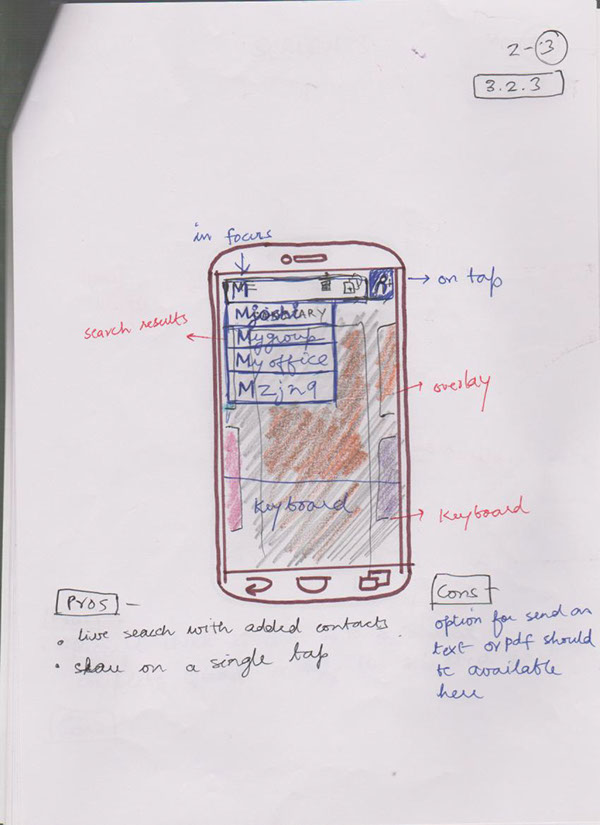 2-3
3.2.3
in focus
on tap
M
Mjoshi
search results
Mygroup
My office
Mzjng
overlay
Keyboard
Keyboard
Pros -
• live search with added contacts
• share on a single tap
Cons -
option for send an
text or pdf should
be available
here